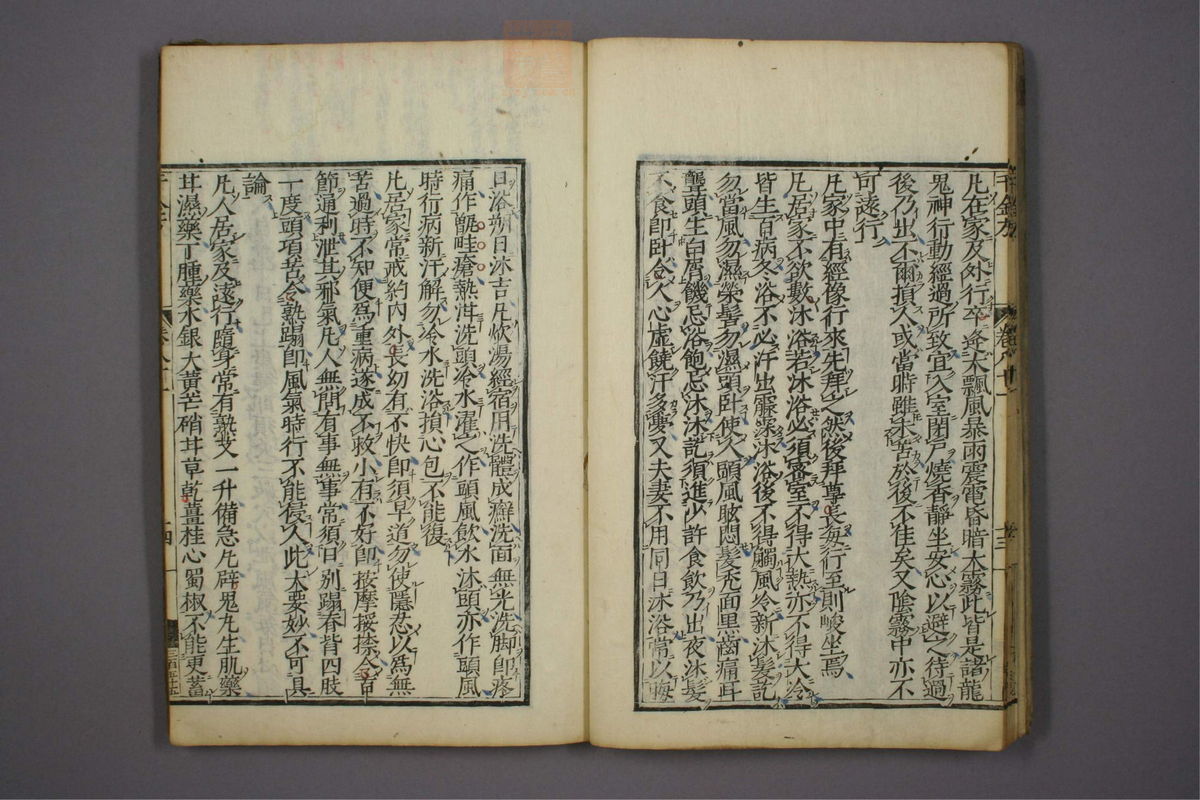 千金方
卷八十一
十三
凡在家及外行卒逢大飄風暴雨震電昏暗大霧此皆是諸龍
鬼神行動經過所致宜入室閉戶燒香靜坐安心以避之待過
後乃出不爾損人或當時雖未苦於後不佳矣又陰霧中亦不
可遠行
凡家中有經像行來先拜之然後拜尊長每行至則峻坐焉
凡居家不欲數沐浴若沐浴必須密室不得大熱亦不得大冷
皆生百病冬浴不必汗出霢霂沐浴後不得觸風冷新沐髮訖
勿當風勿濕縈髻勿濕頭臥使人頭風眩悶髮禿面黑齒痛耳
聾頭生白屑饑忌浴飽忌沐沐訖須進少許食飲乃出夜沐髮
不食即臥令人心虛饒汗多夢又夫妻不用同日沐浴常以晦
日浴朔日沐吉凡炊湯經宿用洗體成癬洗面無光洗脚即疼
痛作甑畦瘡熱泔洗頭冷水濯之作頭風飲水沐頭亦作頭風
時行病新汗解勿冷水洗浴損心包不能復
凡居家常戒約內外長幼有不快即須早道勿使隱忍以爲無
苦過時不知便爲重病遂成不救小有不好即按摩挼捺令百
節通利泄其邪氣凡人無問有事無事常須日別蹋脊背四肢
一度頭項苦令熟蹋即風氣時行不能侵人此大要妙不可具
論
凡人居家及遠行隨身常有熟艾一升備急凡辟鬼凡生肌藥
甘濕藥丁腫藥水銀大黃芒硝甘草乾薑桂心蜀椒不能更蓄
千金方
卷八十一
十四